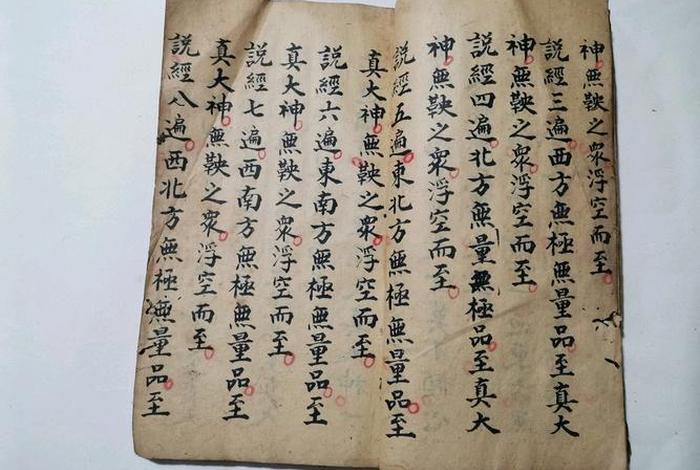 神無鞅之衆浮空而至
說經三遍西方無極無量品至真大
神無鞅之衆浮空而至
說經四遍北方無量無極品至真大
神無鞅之衆浮空而至
說經五遍東北方無極無量品至
真大神無鞅之衆浮空而至
說經六遍東南方無極無量品至
真大神無鞅之衆浮空而至
說經七遍西南方無極無量品至
真大神無鞅之衆浮空而至
說經八遍西北方無極無量品至